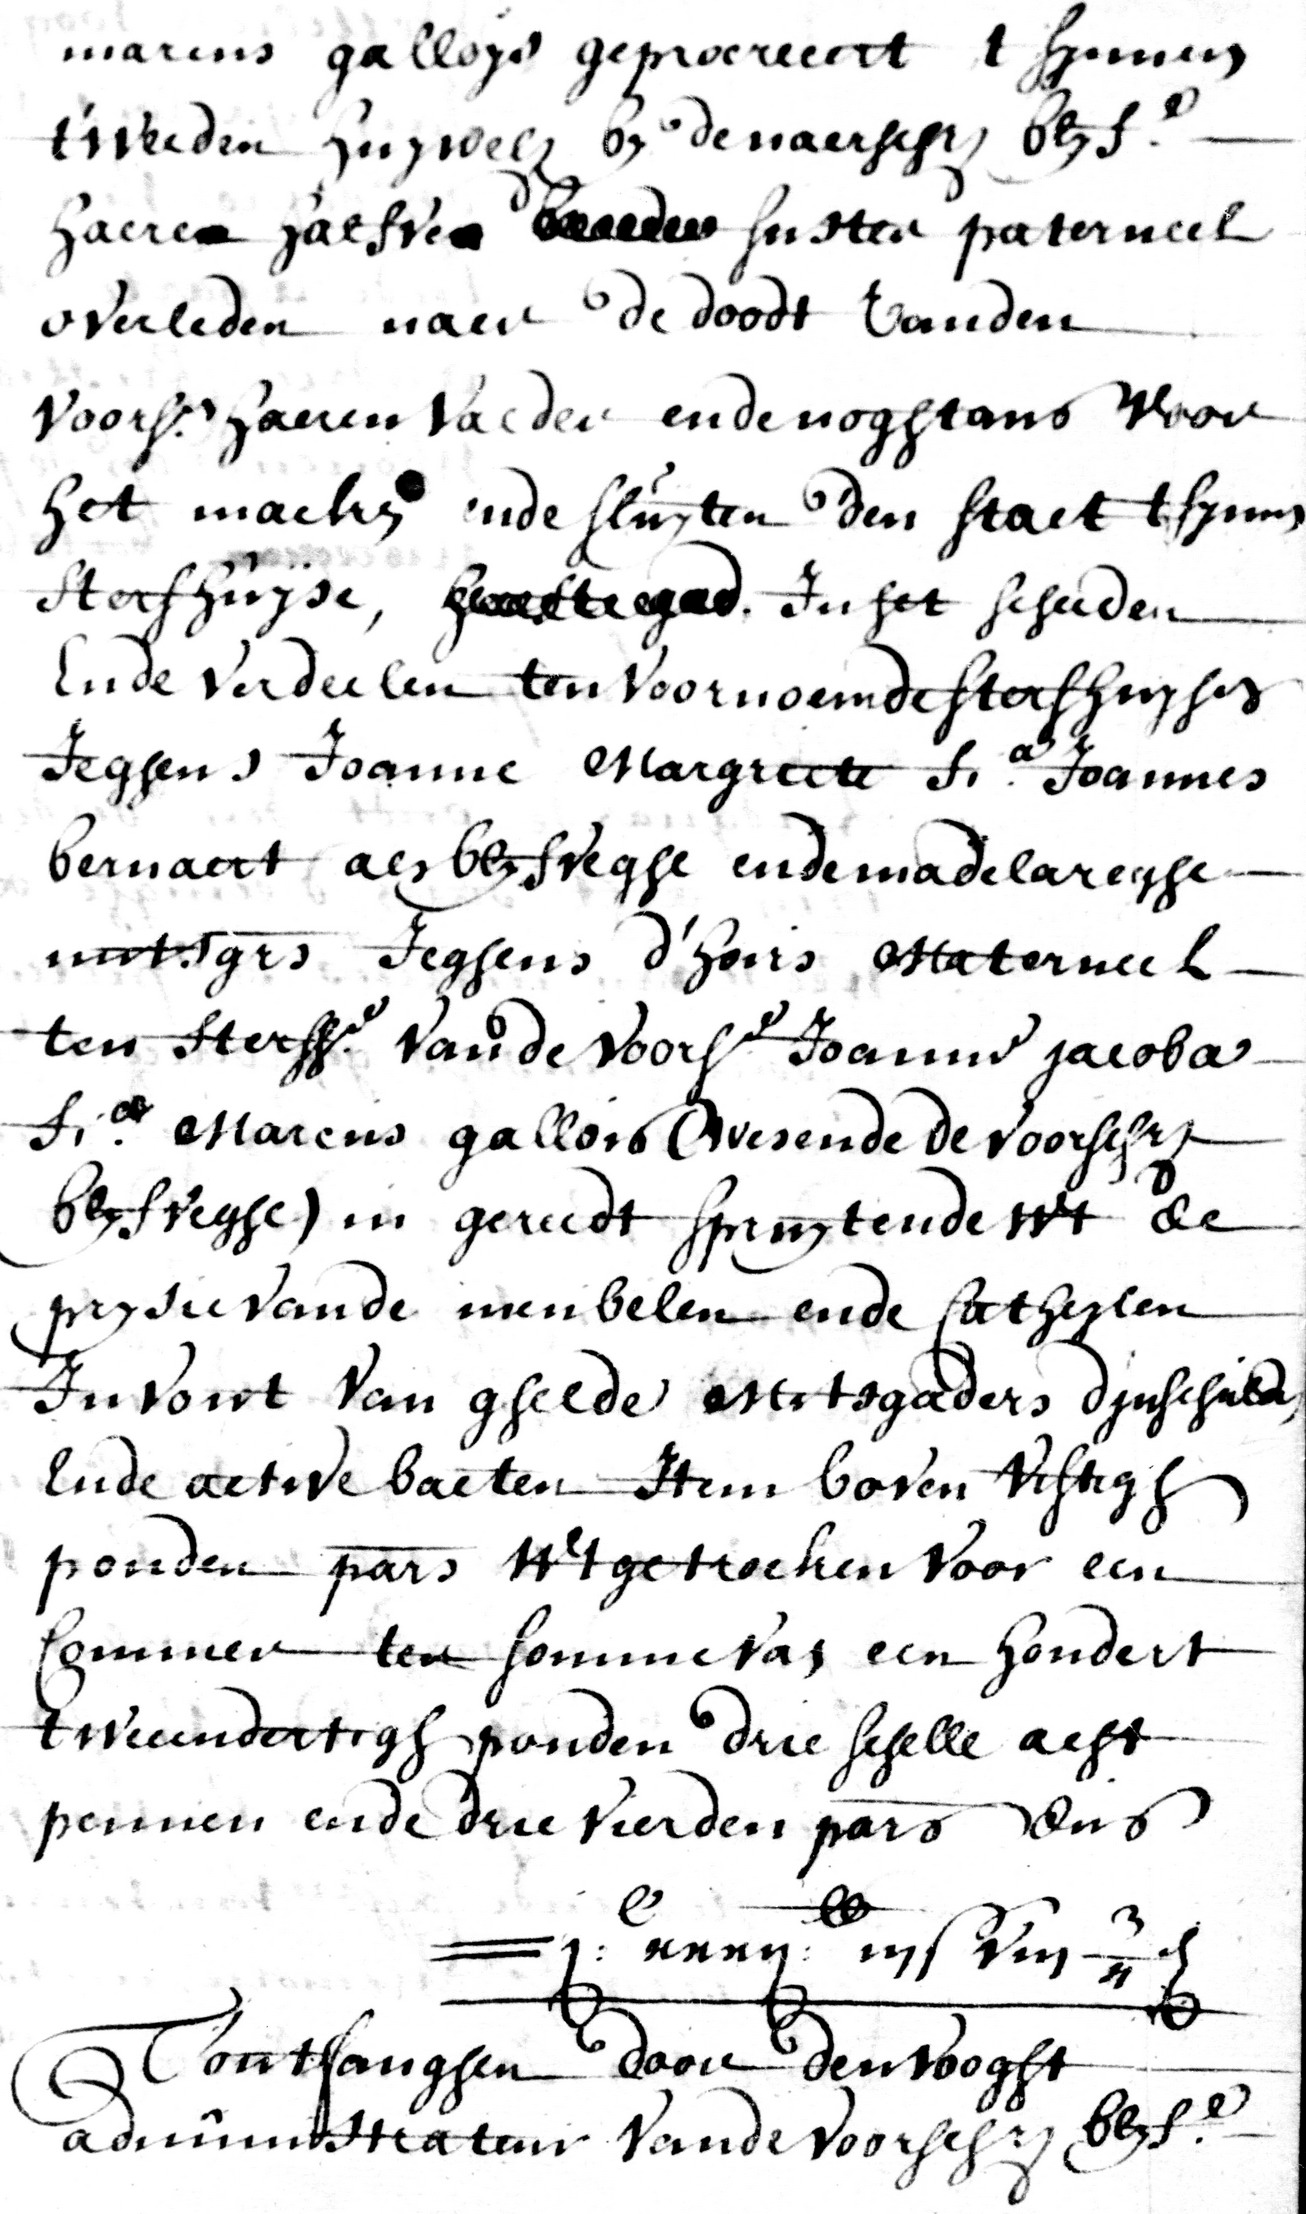 marcus galloijs geprocreeert t sijnnen
t'weeden huijwel. bij de naerschr. blijf.e
haere haelfve suster paterneel
overleden naer de doodt vanden
voors. haeren vaeder ende noghtans voor
het maeken ende sluijten den staet t sijnen
sterfhuijse, In het scheeden
Ende verdeelen ten voornoemde sterfhuijse
Jeghens Joanne Margriete fi.a Joannes
bernaert als blijfveghe ende madelareghe
mitsgrs Jeghens d'hoirs Materneel
ten sterfh.e vande voors.e Joanne jacoba
fi.a Marcus gallois (wesende de voorschr.
blijfveghe) in gereedt spruijtende wt de
prijsie vande meubelen ende Catheijlen
In vont van ghelde Mitsgaders d'inschulden
Ende active baeten Item boven vichtigh
ponden pars wtgetrocken voor een
Commer ter somme van een hondert
tweeendertigh ponden drie schelle acht
pennen ende drie vierden pars dus
j:c xxxij: lb iij s viij 3/4 d
T'ontfanghen door den vooght
administrateur vande voorschr. blijf.e